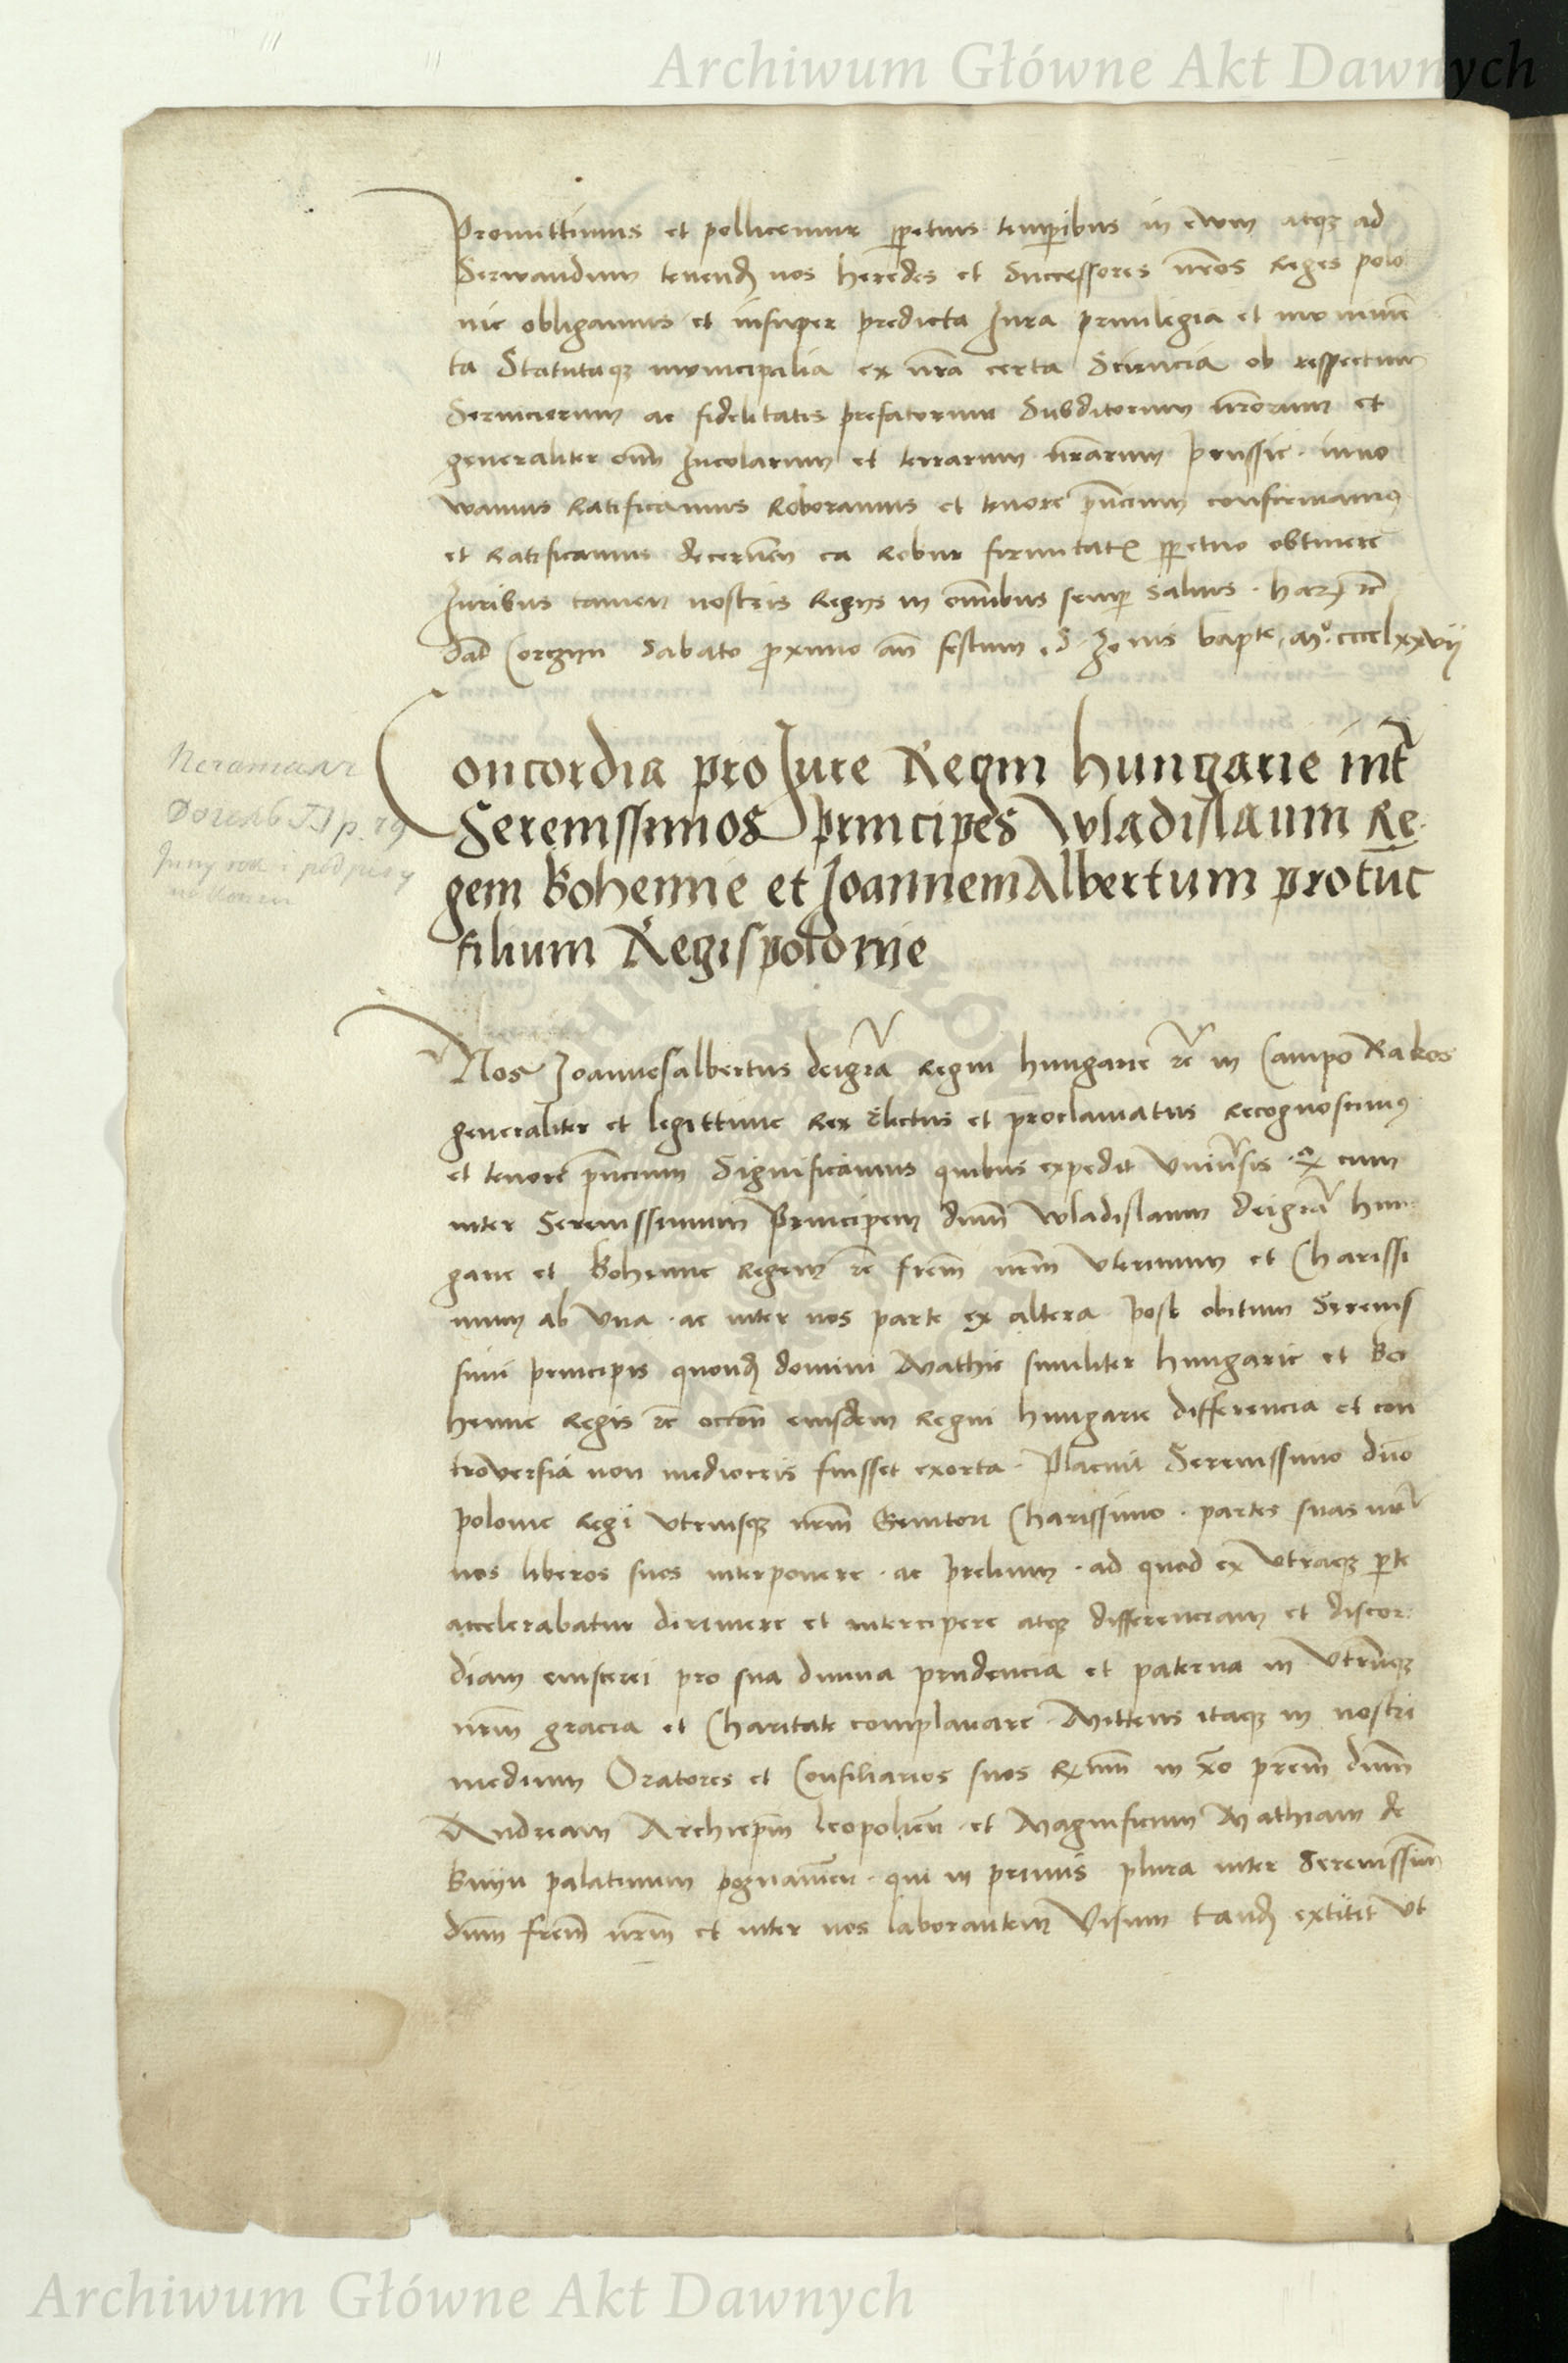 Archiwum Główne Akt Dawnych
Promittimus et pollicemur ꝑpetuis tempibus in ewm atqꝫ ad
Serwandum tenend nos heredes et Successores nr̄os Reges polo
nie obligamus et insuper predicta Jura priuilegia et monimē
ta Statutaqꝫ municipalia ex nr̄a certa Sciencia ob respectum
Seruiciorum ac fidelitatis prefatorum Subditorum nr̄orum et
generaliter om̄ Incolarum et terrarum nr̄arum prussie inno
wamus Ratificamus Roboramus et tenore pn̄cium confirmamꝰ
et Ratificamus decernen̄ ea Robur firmitatꝭ ꝑpetuo obtinere
Juribus tamen nostris Regijs in om̄ibus semp saluis harꝫ rc̄
dat̄ Corczyn Sabato proximo an̄ festum S Joh̄nis bapte Mº cccclxxvij
Concordia pro Jure Regni hungarie int̄
Serenissimos principes Wladislaum Re
gem Bohemie et Joannem Albertum protūc
filium Regis polonie
Nos Joannes albertus dei gr̄a Regni hungarie rc̄ in Campo Rakos
generaliter et legittime Rex Electus et proclamatus Recognoscimꝰ
et tenore pn̄cium Significamus quibus expedit Vniu̅sis ꝙ cum
inter Serenissimum Principem dnm̄ Wladislaum dei gr̄a hun
garie et Bohemie Regem rc̄ frem̄ nrm̄ Vterinum et Charissi
mum ab Vna ac inter nos parte ex altera post obitum Serenis
simi principis quond domini Mathie similiter hungarie et Bo
hemie Regis rc̄ occōn eiusdem Regni hungarie differencia et con
trouersia non mediocris fuisset exorta Placuit Serenissimo dn̄o
polonie Regi Vtriusqꝫ nrm̄ Genitori Charissimo partes suas int̄
nos liberos suos interponere ac prelium ad quod ex Vtraqꝫ pte
accelerabatur dirimere et intercipere atqꝫ differenciam et discor
diam eiuscerei pro sua diuina prudencia et paterna in Vtrūqꝫ
nrm̄ gracia et Charitate complanare Mittens itaqꝫ in nostri
medium Oratores et Consiliarios suos Rm̄ in xp̄o prem̄ dnm̄
Andream Archiepm̄ leopolien̄ et Magnificum Mathiam de
Bnijn palatinum poznanien̄ qui in primis plura inter Serenissim̄
dnm̄ frem̄ nrm̄ et inter nos laborantem Visum tand extitit Vt
Archiwum Główne Akt Dawnych